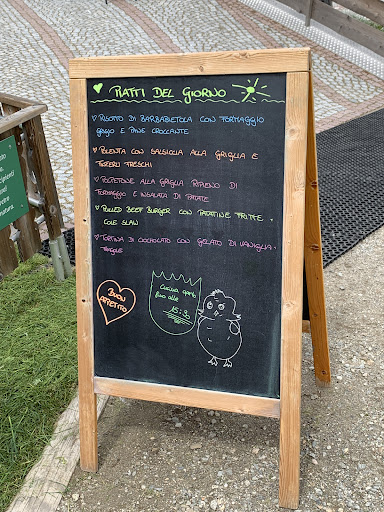 PIATTI DEL GIORNO
RISOTTO DI BARBABIETOLA CON FORMAGGIO
GRIGIO E PANE CROCCANTE
POLENTA CON SALSICCIA ALLA GRIGLIA E
FUNGHI FRESCHI
PEPERONE ALLA GRIGLIA RIPIENO DI
FORMAGGIO E INSALATA DI PATATE
PULLED BEEF BURGER CON PATATINE FRITTE +
COLE SLAW
TORTINA DI CIOCCOLATO CON GELATO DI VANIGLIA +
FRAGOLE
BUON
APPETITO
Cucina aperta
fino alle
15:30